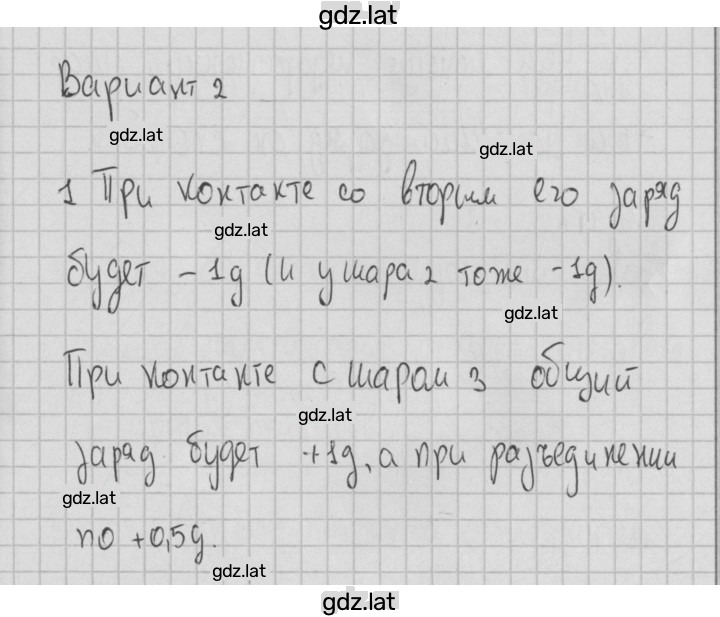 gdz.lat
Вариант 2
gdz.lat
gdz.lat
1 При контакте со вторым его заряд
gdz.lat
будет -1g (и у шара 2 тоже -1g).
gdz.lat
При контакте с шаром 3 общий
gdz.lat
заряд будет +1g, а при разъединении
gdz.lat
по +0,5g.
gdz.lat
gdz.lat